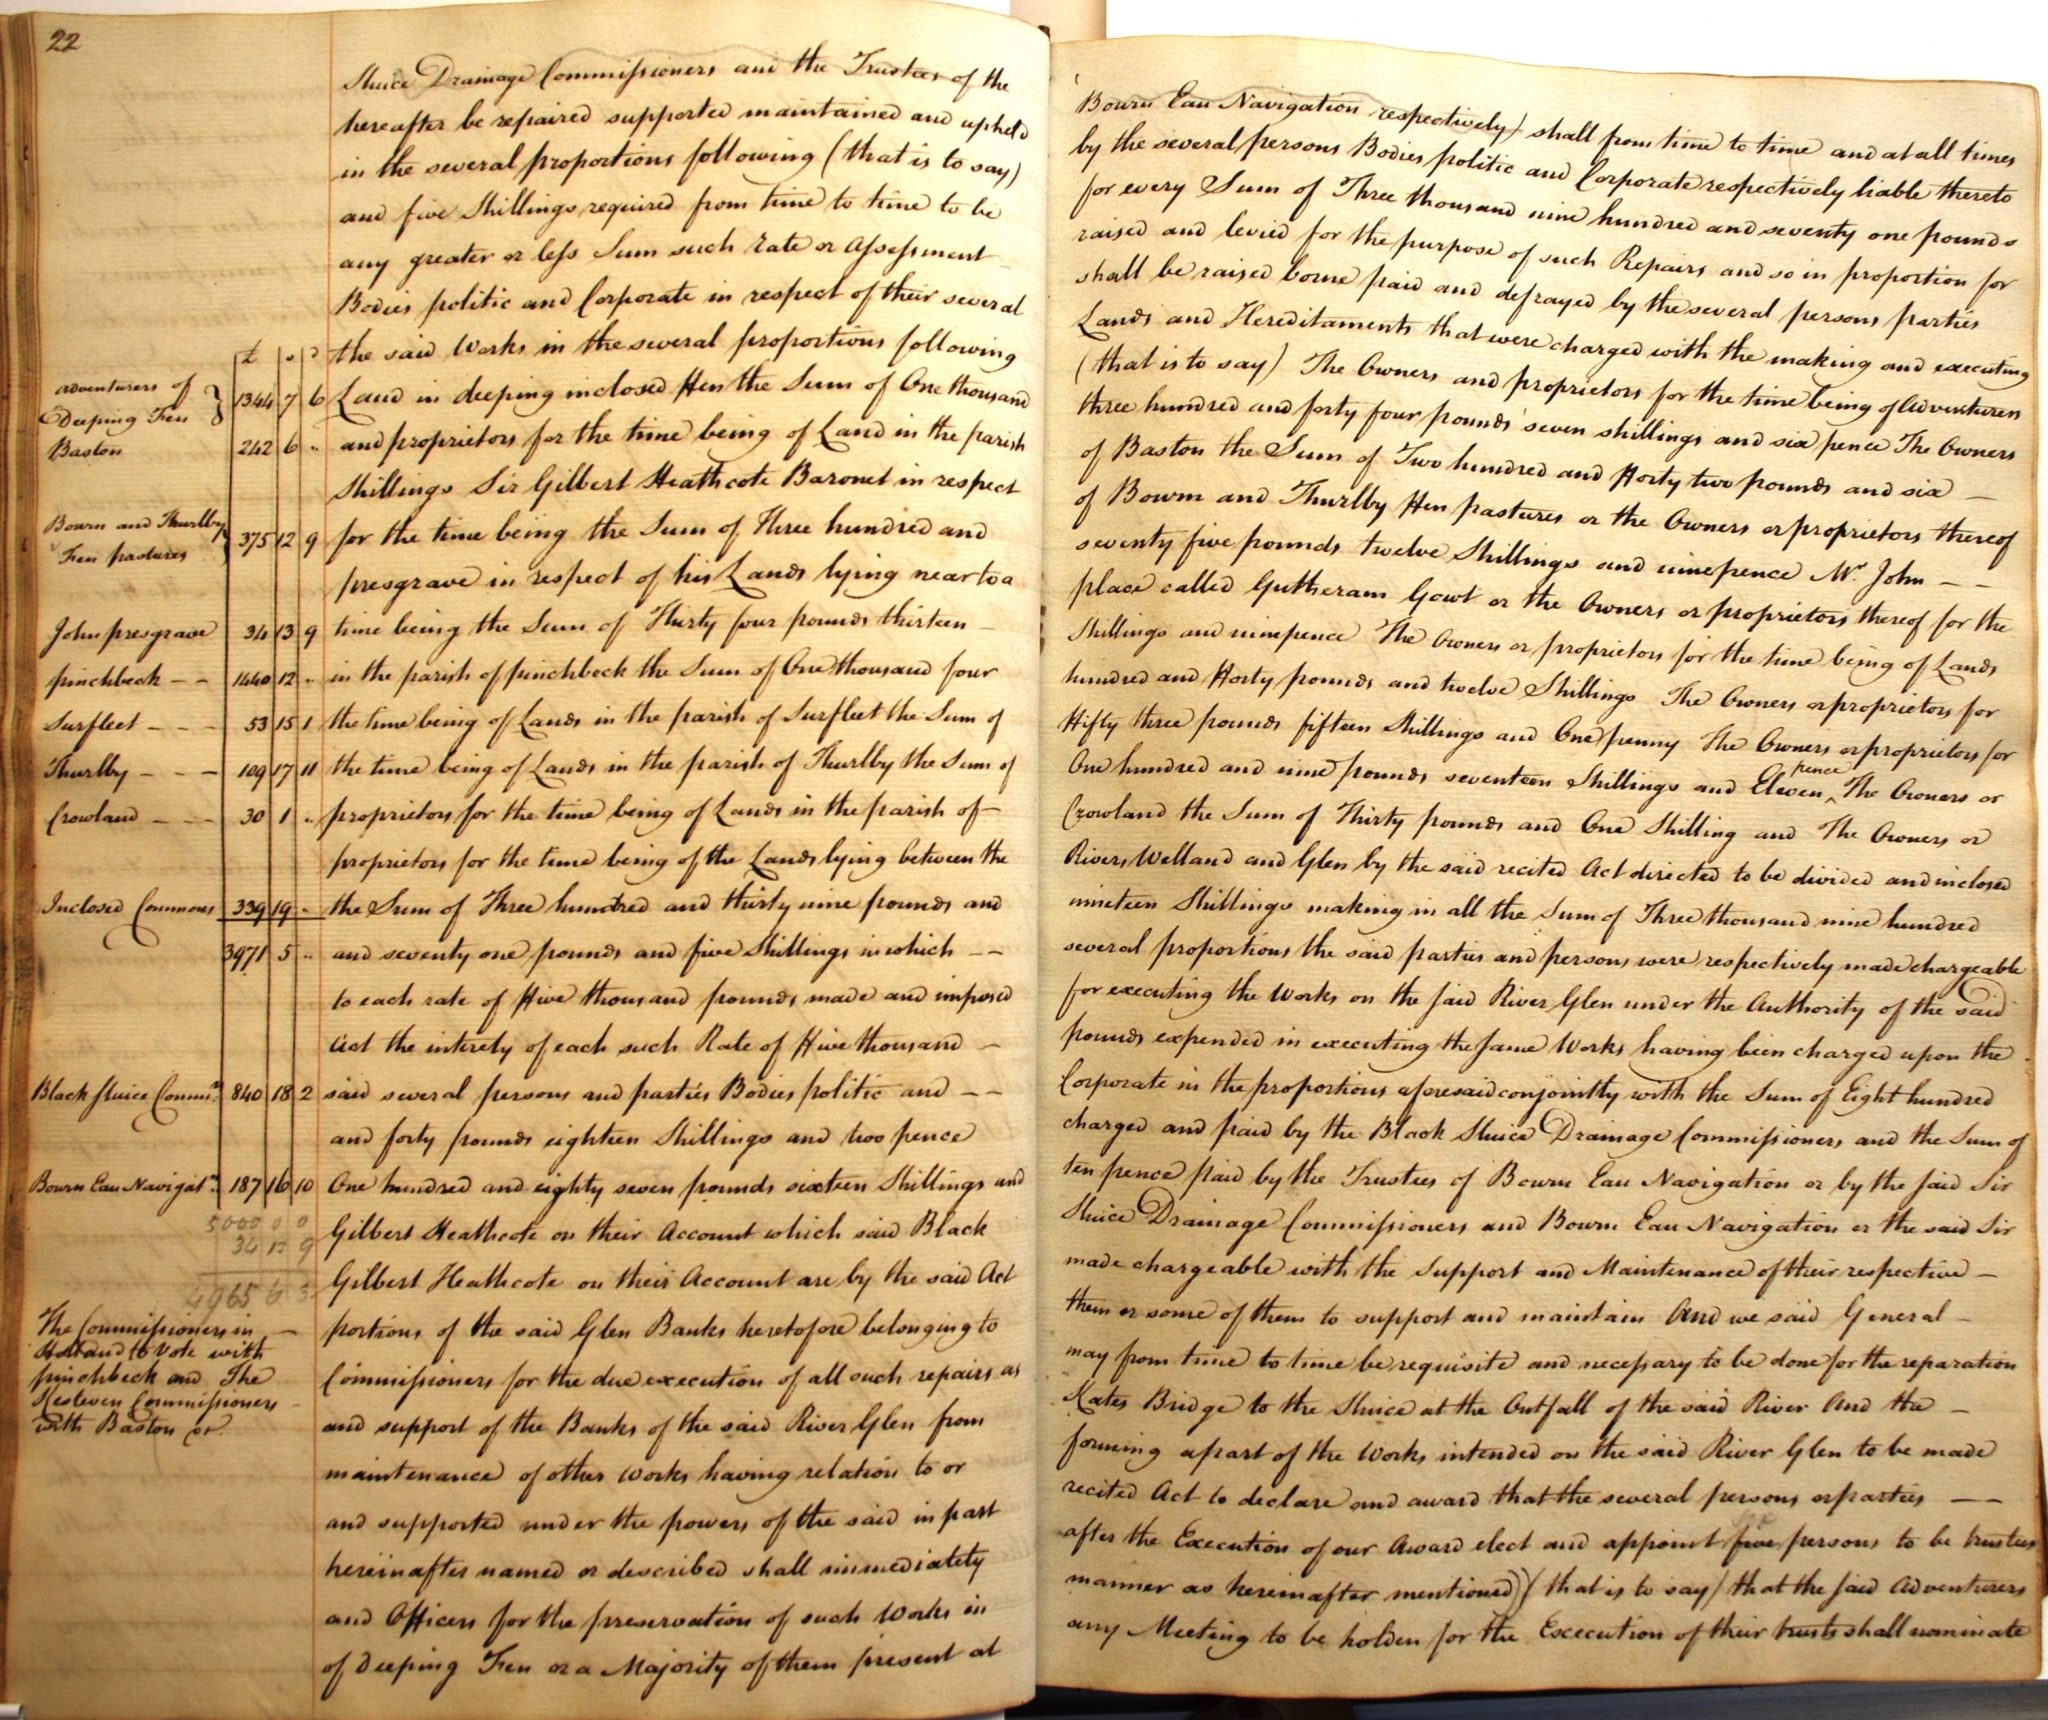 22
£ s d
adventurers of
Deeping Fen } 1344 7 6
Baston 242 6 "
Bourn and Thurlby
Fen pastures } 375 12 9
John presgrave 34 13 9
pinchbeck - - 1440 12 "
Surfleet - - - 53 15 1
Thurlby - - - 109 17 11
Crowland - - - 30 1 "
Inclosed Commons 339 19 "
3971 5 "
Black Sluice Commrs 840 18 2
Bourn Eau Navigatn 187 16 10
5000 0 0
34 13 9
4965 6 3
The Commissioners in
Holland to Vote with
pinchbeck and The
Kesteven Commissioners
with Baston or
Sluice Drainage Commissioners and the Trustees of the Bourn Eau Navigation respectively) shall from time to time and at all times
hereafter be repaired supported maintained and upheld by the several persons Bodies politic and Corporate respectively liable thereto
in the several proportions following (that is to say) for every Sum of Three thousand nine hundred and seventy one pounds
and five Shillings required from time to time to be raised and levied for the purpose of such Repairs and so in proportion for
any greater or less Sum such rate or Assessment shall be raised borne paid and defrayed by the several persons parties
Bodies politic and Corporate in respect of their several Lands and Hereditaments that were charged with the making and executing
the said Works in the several proportions following (that is to say) The Owners and proprietors for the time being of Adventurers
Land in deeping inclosed Fen the Sum of One thousand three hundred and forty four pounds seven shillings and six pence The Owners
and proprietors for the time being of Land in the parish of Baston the Sum of Two hundred and Forty two pounds and six –
Shillings Sir Gilbert Heathcote Baronet in respect of Bourn and Thurlby Fen pastures or the Owners or proprietors thereof
for the time being the Sum of Three hundred and seventy five pounds twelve Shillings and ninepence Mr John – –
presgrave in respect of his Lands lying near to a place called Gutheram Gowt or the Owners or proprietors thereof for the
time being the Sum of Thirty four pounds thirteen – Shillings and ninepence The Owners or proprietors for the time being of Lands
in the parish of pinchbeck the Sum of One thousand four hundred and Forty pounds and twelve Shillings The Owners or proprietors for
the time being of Lands in the parish of Surfleet the Sum of Fifty three pounds fifteen Shillings and One penny The Owners or proprietors for
the time being of Lands in the parish of Thurlby the Sum of One hundred and nine pounds seventeen Shillings and Eleven ^pence The Owners or
proprietors for the time being of Lands in the parish of – Crowland the Sum of Thirty pounds and One Shilling and The Owners or
proprietors for the time being of the Lands lying between the Rivers Welland and Glen by the said recited Act directed to be divided and inclosed
the Sum of Three hundred and thirty nine pounds and nineteen Shillings making in all the Sum of Three thousand nine hundred
and seventy one pounds and five Shillings in which – – several proportions the said parties and persons were respectively made chargeable
to each rate of Five thousand pounds made and imposed for executing the Works on the said River Glen under the Authority of the said
Act the intirety of each such Rate of Five thousand – pounds expended in executing the same Works having been charged upon the
said several persons and parties Bodies politic and – – Corporate in the proportions aforesaid conjointly with the Sum of Eight hundred
and forty pounds eighteen Shillings and two pence charged and paid by the Black Sluice Drainage Commissioners and the Sum of
One hundred and eighty seven pounds sixteen Shillings and ten pence paid by the Trustees of Bourn Eau Navigation or by the said Sir
Gilbert Heathcote on their Account which said Black Sluice Drainage Commissioners and Bourn Eau Navigation or the said Sir
Gilbert Heathcote on their Account are by the said Act made chargeable with the Support and Maintenance of their respective –
portions of the said Glen Banks heretofore belonging to them or some of them to support and maintain And we said General –
Commissioners for the due execution of all such repairs as may from time to time be requisite and necessary to be done for the reparation
and support of the Banks of the said River Glen from Kates Bridge to the Sluice at the Outfall of the said River And the –
maintenance of other Works having relation to or forming a part of the Works intended on the said River Glen to be made
and supported under the powers of the said in part recited Act to declare and award that the several persons or parties – –
hereinafter named or described shall immediately after the Execution of our Award elect and appoint five persons to be trustees
and Officers for the preservation of such Works in manner as hereinafter mentioned) (that is to say) that the said Adventurers
of Deeping Fen or a Majority of them present at any Meeting to be holden for the Execution of their trusts shall nominate